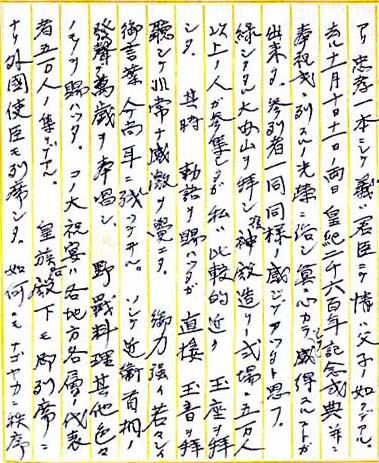 アリ忠孝一本ニシテ義ハ君臣ニシテ情ハ父子ノ如クデアル。
去ル十一月十日十一日ノ両日皇紀二千六百年記念式典并ニ
奉祝式ニ列スルノ光栄ニ浴シ真心カラ感得スルコトガ
出来タ。参列者一同同様ノ感ジデアツタト思フ。
緑シタル大内山ヲ拝シ神殿造リノ式場ニ五万人
以上ノ人ガ参集シタガ私ハ比較的近ク玉座ヲ拝
シタ。其時勅語ヲ賜ハツタガ直接玉音ヲ拝
聴シテ非常ナ感激ヲ覚エタ。御力強イ若々シイ
御言葉今尚耳ニ残ツテヰル。ソシテ近衛首相ノ
発声デ萬歳ヲ奉唱シ、野戦料理其他色々
ノモノヲ賜ハツタ。コノ大祝宴ハ各地方各層ノ代表
者五万人ノ集リデアル。皇族各殿下モ御列席ニ
ナリ外国使臣モ列席シタ。如何ニモナゴヤカニ秩序